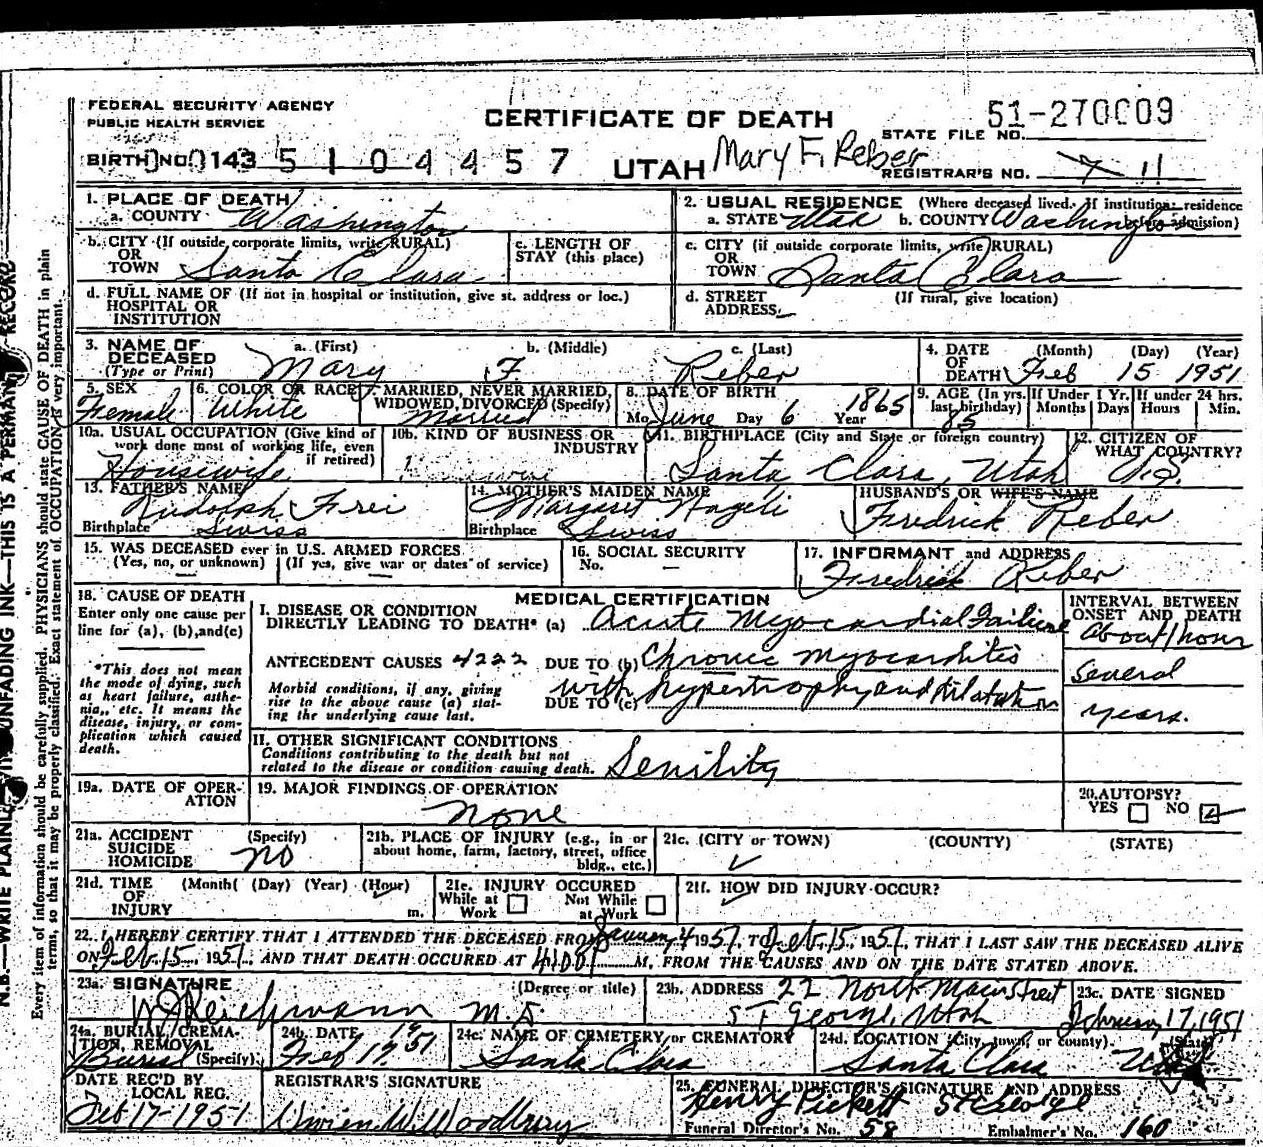 FEDERAL SECURITY AGENCY
PUBLIC HEALTH SERVICE
CERTIFICATE OF DEATH
51-270009
STATE FILE NO.
BIRTH NO. 143 5 1 0 4 4 5 7
UTAH
Mary F. Reber
REGISTRAR'S NO. 11
1. PLACE OF DEATH
a. COUNTY Washington
2. USUAL RESIDENCE (Where deceased lived. If institution: residence before admission)
a. STATE Utah b. COUNTY Washington
b. CITY (If outside corporate limits, write RURAL)
OR
TOWN Santa Clara
c. LENGTH OF
STAY (this place)
c. CITY (if outside corporate limits, write RURAL)
OR
TOWN Santa Clara
d. FULL NAME OF (If not in hospital or institution, give st. address or loc.)
HOSPITAL OR
INSTITUTION
d. STREET (If rural, give location)
ADDRESS
3. NAME OF
DECEASED
(Type or Print)
a. (First) b. (Middle) c. (Last)
Mary F. Reber
4. DATE (Month) (Day) (Year)
OF
DEATH Feb 15 1951
5. SEX
Female
6. COLOR OR RACE
White
7. MARRIED, NEVER MARRIED,
WIDOWED, DIVORCED (Specify)
Married
8. DATE OF BIRTH
Mo. June Day 6 Year 1865
9. AGE (In yrs. last birthday) If Under 1 Yr. If under 24 hrs.
Months Days Hours Min.
85
10a. USUAL OCCUPATION (Give kind of
work done most of working life, even
if retired)
Housewife
10b. KIND OF BUSINESS OR
INDUSTRY
11. BIRTHPLACE (City and State or foreign country)
Santa Clara, Utah
12. CITIZEN OF
WHAT COUNTRY?
U.S.
13. FATHER'S NAME
Rudolph Frei
Birthplace Swiss
14. MOTHER'S MAIDEN NAME
Margaret Nageli
Birthplace Swiss
HUSBAND'S OR WIFE'S NAME
Fredrick Reber
15. WAS DECEASED ever in U.S. ARMED FORCES
(Yes, no, or unknown) (If yes, give war or dates of service)
16. SOCIAL SECURITY
No. —
17. INFORMANT and ADDRESS
Fredrick Reber
18. CAUSE OF DEATH
Enter only one cause per
line for (a), (b), and (c)
*This does not mean
the mode of dying, such
as heart failure, asthe-
nia, etc. It means the
disease, injury, or com-
plication which caused
death.
MEDICAL CERTIFICATION
I. DISEASE OR CONDITION
DIRECTLY LEADING TO DEATH* (a) Acute Myocardial Failure
ANTECEDENT CAUSES 4222 DUE TO (b) Chronic myocarditis
Morbid conditions, if any, giving
rise to the above cause (a) stat-
ing the underlying cause last.
DUE TO (c) with hypertrophy and dilatation
INTERVAL BETWEEN
ONSET AND DEATH
About 1 hour
several
years.
II. OTHER SIGNIFICANT CONDITIONS
Conditions contributing to the death but not
related to the disease or condition causing death. Senility
19a. DATE OF OPER-
ATION
19. MAJOR FINDINGS OF OPERATION
none
20. AUTOPSY?
YES NO
21a. ACCIDENT (Specify)
SUICIDE
HOMICIDE no
21b. PLACE OF INJURY (e.g., in or
about home, farm, factory, street, office
bldg., etc.)
21c. (CITY or TOWN) (COUNTY) (STATE)
21d. TIME (Month) (Day) (Year) (Hour)
OF
INJURY m.
21e. INJURY OCCURED
While at Work Not While at Work
21f. HOW DID INJURY OCCUR?
22. I HEREBY CERTIFY THAT I ATTENDED THE DECEASED FROM January 4 1951, TO Feb. 15, 1951, THAT I LAST SAW THE DECEASED ALIVE
ON Feb. 15, 1951, AND THAT DEATH OCCURED AT M., FROM THE CAUSES AND ON THE DATE STATED ABOVE.
23a. SIGNATURE (Degree or title)
Reichmann M.D.
23b. ADDRESS 22 North Main Street
St George, Utah
23c. DATE SIGNED
February 17, 1951
24a. BURIAL, CREMA-
TION, REMOVAL
Burial (Specify)
24b. DATE
Feb 19 1951
24c. NAME OF CEMETERY or CREMATORY
Santa Clara
24d. LOCATION (City, town, or county) (State)
Santa Clara Utah
DATE REC'D BY
LOCAL REG.
Feb 17-1951
REGISTRAR'S SIGNATURE
Vivien W. Woodbury
25. FUNERAL DIRECTOR'S SIGNATURE AND ADDRESS
Henry Pickett St George
Funeral Director's No. 58 Embalmer's No. 160
N.B.—WRITE PLAINLY UNFADING INK—THIS IS A PERMANENT RECORD
Every item of information should be carefully supplied. PHYSICIANS should state CAUSE OF DEATH in plain
terms, so that it may be properly classified. Exact statement of OCCUPATION is very important.